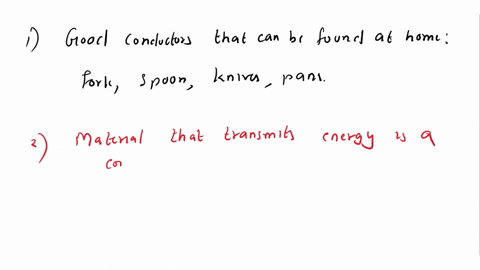 1) Good conductors that can be found at home:
fork, spoon, knives, pans.
2) Material that transmits energy is a
co